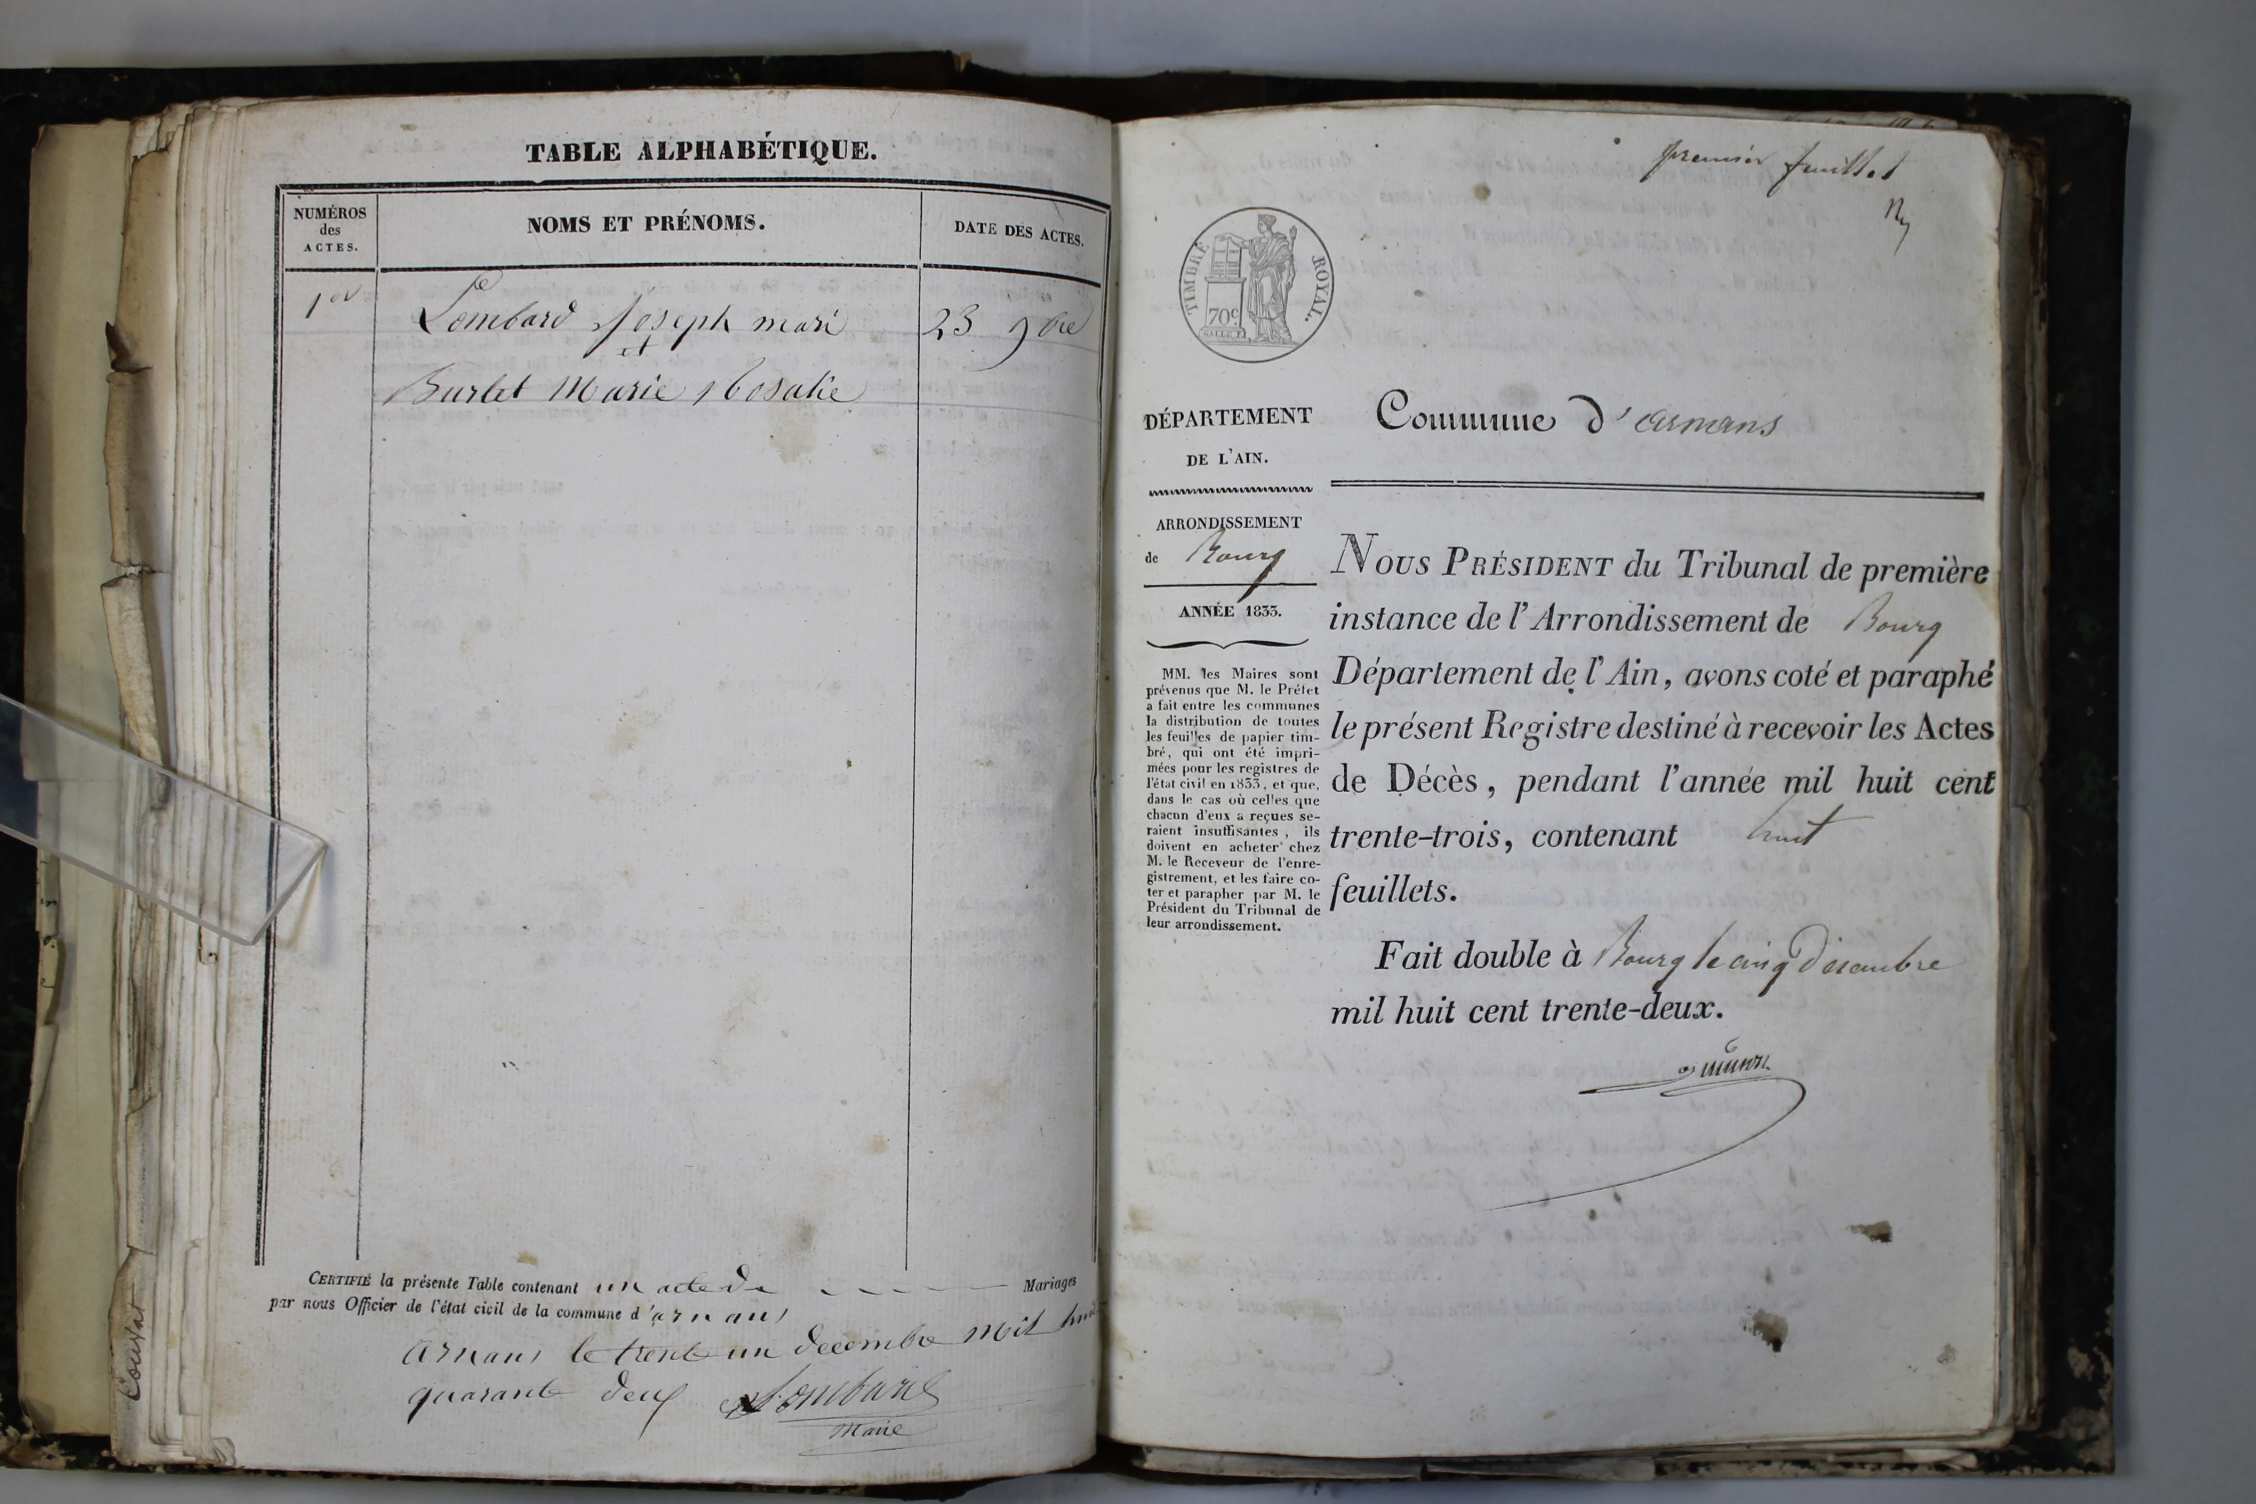 TABLE ALPHABÉTIQUE.
NUMÉROS
des
ACTES.
NOMS ET PRÉNOMS.
DATE DES ACTES.
1er
Lombard Joseph mari
23 9bre
et
Burlet Marie Rosalie
CERTIFIÉ la présente Table contenant un acte de Mariages
par nous Officier de l'état civil de la commune d'arnans
arnans le trente un decembre mil huit
quarante deux Lombard
Maire
Couvat
premier feuillet
TIMBRE ROYAL.
70c
DÉPARTEMENT
DE L'AIN.
Commune d'arnans
ARRONDISSEMENT
de Bourg
ANNÉE 1833.
MM. les Maires sont
prévenus que M. le Préfet
a fait entre les communes
la distribution de toutes
les feuilles de papier tim-
bré, qui ont été impri-
mées pour les registres de
l'état civil en 1833, et que,
dans le cas où celles que
chacun d'eux a reçues se-
raient insuffisantes, ils
doivent en acheter chez
M. le Receveur de l'enre-
gistrement, et les faire co-
ter et parapher par M. le
Président du Tribunal de
leur arrondissement.
NOUS PRÉSIDENT du Tribunal de première
instance de l'Arrondissement de Bourg
Département de l'Ain, avons coté et paraphé
le présent Registre destiné à recevoir les Actes
de Décès, pendant l'année mil huit cent
trente-trois, contenant huit
feuillets.
Fait double à Bourg le cinq Décembre
mil huit cent trente-deux.